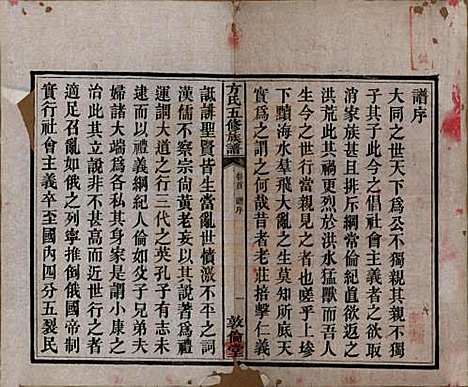 譜序
大同之世天下爲公不獨親其親不獨
子其子此今之倡社會主義者之欲取
消家族甚且排斥綱常倫紀直欲返之
洪荒此其禍更烈於洪水猛獸而吾人
見之近世行當親見之者也嗟乎上塲
下黷海水羣飛大亂之生未知所底天
實爲之謂之何哉昔者老莊掊擊仁義
方氏五修族譜
卷首 譜序
敦倫堂
詆誹聖賢皆生當亂世憤激不平之詞
漢儒不察宗尚黃老妄以其說著爲禮
運謂大道之行三代之英孔子有志未
逮而以禮義綱紀人倫如父子兄弟夫
婦諸大端爲各私其身家是謂小康之
古人立說非不甚高而近世行之者
適足召亂如俄之列寧推倒俄國帝制
實行社會主義卒至國內四分五裂民